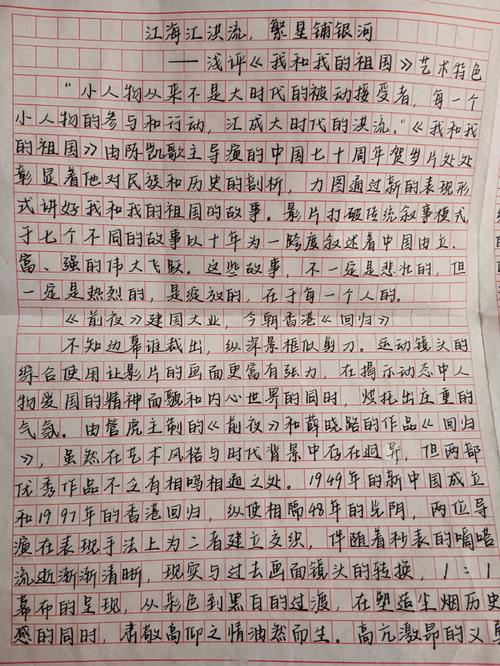 江海汇洪流，繁星铺银河
——浅评《我和我的祖国》艺术特色
“小人物从来不是大时代的被动接受者，每一个
小人物的参与和行动，汇成大时代的洪流。”《我和我
的祖国》由陈凯歌主导演的中国七十周年贺岁片处处
彰显着他对民族和历史的剖析，力图通过新的表现形
式讲好我和我的祖国的故事。影片打破传统叙事模式，
于七个不同的故事以十年为一跨度叙述着中国由立、
富、强的伟大飞跃。这些故事，不一定是悲壮的，但
一定是热烈的，是绽放的，在于每一个人的。
《前夜》建国大业，今朝香港《回归》
不知边幕谁裁出，纵深景框似剪刀。运动镜头的
综合使用让影片的画面更富有张力，在揭示动态中人
物爱国的精神面貌和内心世界的同时，烘托出庄重的
气氛。由管虎主制的《前夜》和薛晓路的作品《回归
》，虽然在艺术风格与时代背景中存在迥异，但两部
优秀作品不乏有相鸣相通之处。1949年的新中国成立
和1997年的香港回归，纵使相隔48年的光阴，两位导
演在表现手法上为二者建立交织，伴随着秒表的嘀嗒
流逝渐渐清晰，现实与过去画面镜头的转换，1：1
幕布的呈现，从彩色到黑白的过渡，在塑造尘烟历史
感的同时，肃敬高仰之情油然而生。高亢激昂的义